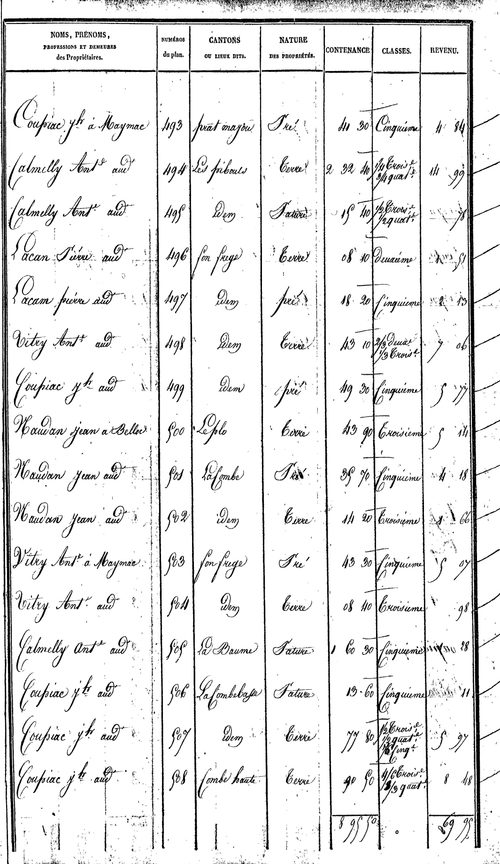 NOMS, PRÉNOMS, PROFESSIONS ET DEMEURES des Propriétaires. NUMÉROS du plan. CANTONS OU LIEUX DITS. NATURE DES PROPRIÉTÉS. CONTENANCE CLASSES. REVENU.
Coupiac jh à Maymac 493 Pré 41 30 Cinquième 4 84
Calmelly Ant.e aud 494 Les pibouls Terre 2 32 40 1/4 Crois.e 3/4 quat.e 14 99
Calmelly Ant.e aud 495 idem Pature 15 40 1/2 Crois.e 1/2 quat.e 78
Lacan Pierre aud 496 fon frege Terre 08 10 Deuxième 51
Lacam pierre aud 497 idem pré 18 20 Cinquième 2 13
Vitry Ant.e aud 498 idem Terre 43 10 2/3 Deux.e 1/3 Crois.e 7 06
Coupiac jh aud 499 idem pré 49 30 Cinquième 5 77
Naudan jean a Bellor 500 Leplo Terre 43 90 Troisième 5 14
Naudan jean aud 501 La Combe Pré 35 70 Cinquième 4 18
Naudan jean aud 502 idem Terre 14 20 Troisième 1 66
Vitry Ant.e à Maymac 503 fon frege Pré 43 30 Cinquième 5 07
Vitry Ant.e aud 504 idem Terre 08 40 Troisième 98
Calmelly Ant.e aud 505 La Baume Pature 1 60 30 Cinquième 28
Coupiac jh aud 506 La Combebasse Pature 13 60 Cinquième 11
Coupiac jh aud 507 idem Terre 77 80 1/2 Crois.e quat.e Cinq.e 5 97
Coupiac jh aud 508 Combe haute Terre 90 50 Crois.e quat.e 8 48
8 95 50 69 95